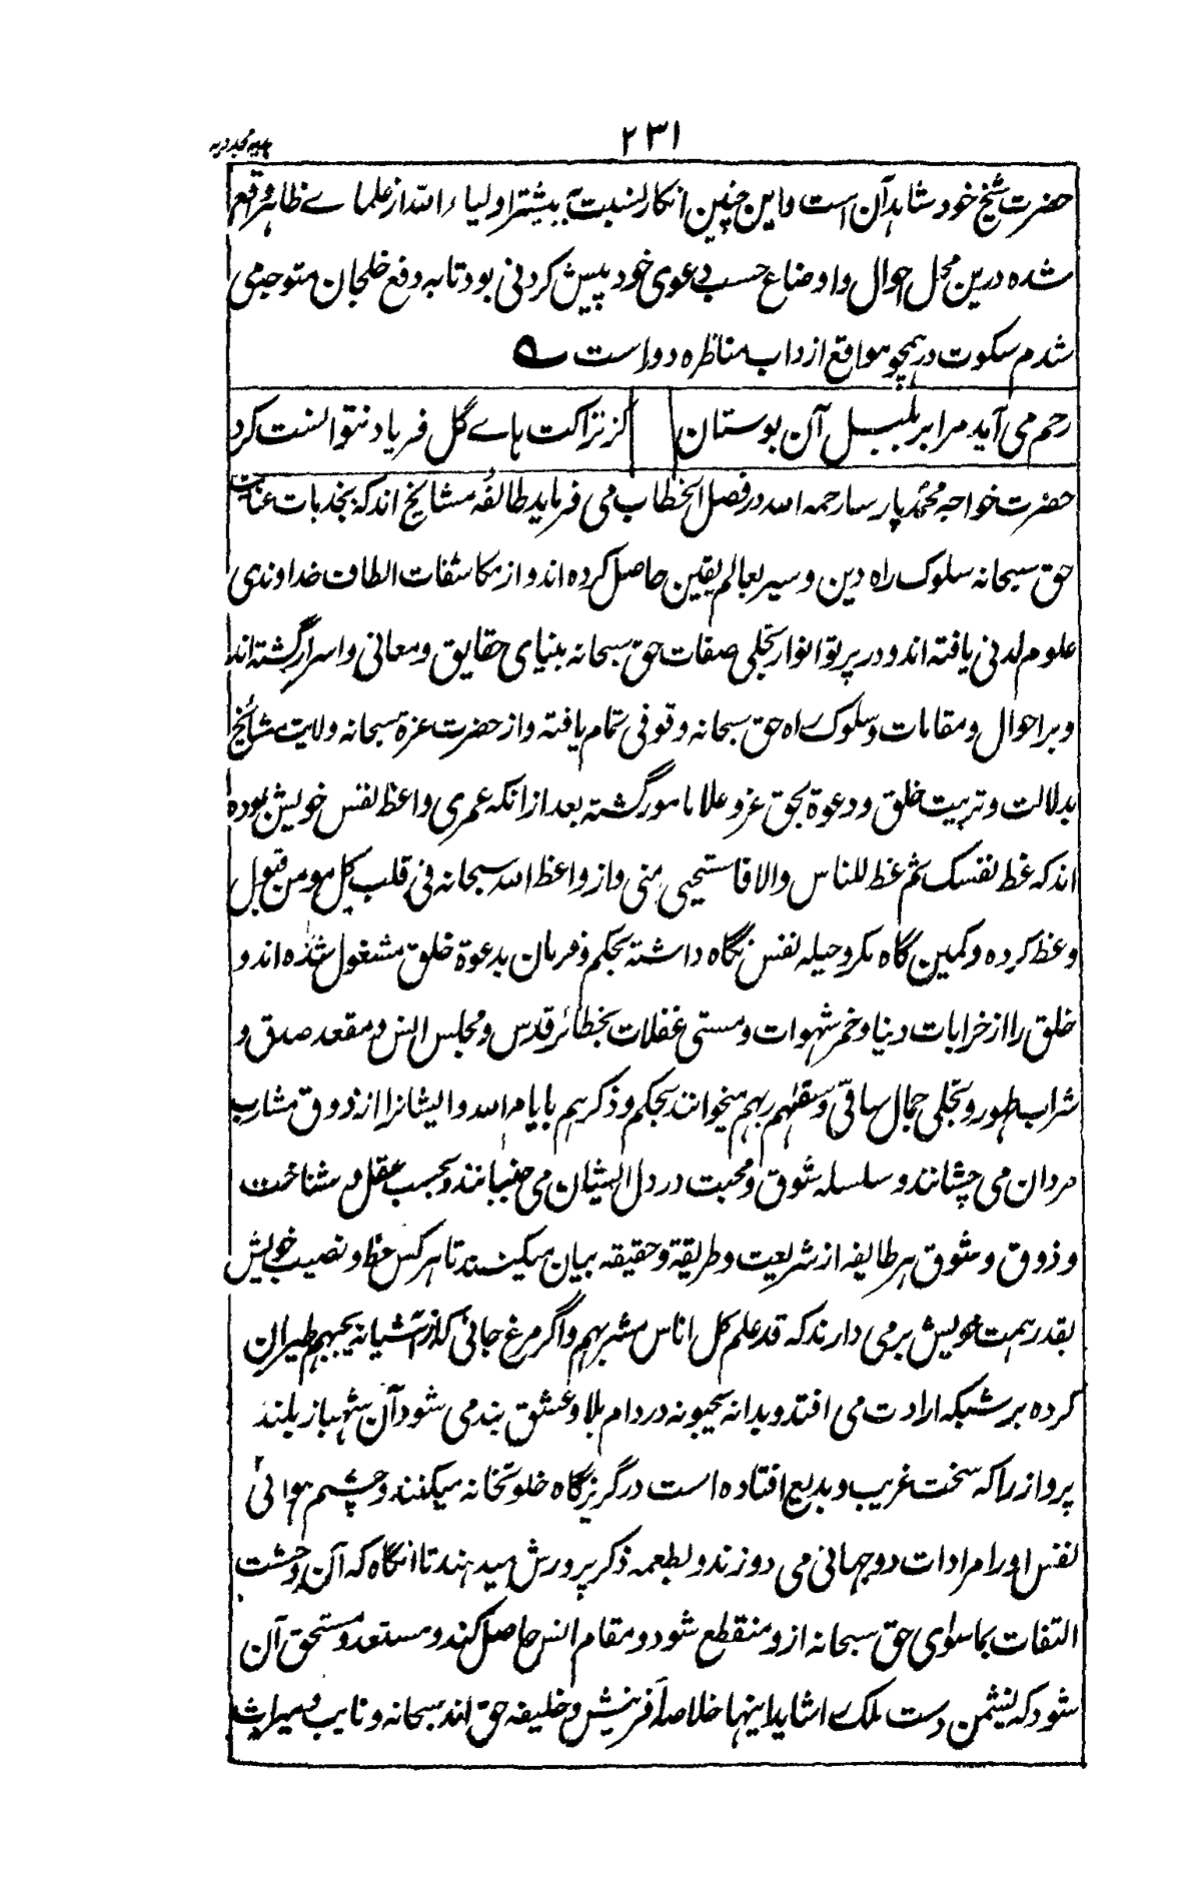 ۲۳۱
حضرت شیخ خود شاہد آن است و این چنین انکار نسبت بہ بیشتر اولیاء اللہ از علماے ظاہر واقع
شدہ درین محل احوال و اوضاع حسب دعوی خود پیش کردنی بود تا بہ دفع خلجان متوجہ می
شدم سکوت در ہمچو مواقع از داب مناظرہ دور است
رحم می آید مرا بر بلبل آن بوستان | کز نزاکت ہاے گل فریاد نتوانست کرد
حضرت خواجہ محمد پارسا رحمہ اللہ در فصل الخطاب می فرماید طائفہ مشائخ اند کہ بجذبات عنایت
حق سبحانہ سلوک راہ دین و سیر بعالم یقین حاصل کردہ اند و از مکاشفات الطاف خداوندی
علوم لدنی یافتہ اند و در پرتو انوار تجلی صفات حق سبحانہ بینای حقایق و معانی و اسرار گشتہ اند
و بر احوال و مقامات و سلوک راہ حق سبحانہ وقوفی تمام یافتہ و از حضرت عزة سبحانہ و ولایت مشائخ
بدلالت و تربیت خلق و دعوة بحق عز و علا مامور گشتہ بعد از انکہ عمری واعظ نفس خویش بودہ
اند کہ عظ نفسک ثم عظ للناس والا فاستحیی منی و از واعظ اللہ سبحانہ فی قلب کل مومن قبول
وعظ کردہ و کمین گاہ مکر و حیلہ نفس نگاہ داشتہ بحکم و فرمان بدعوة خلق مشغول شدہ اند و
خلق را از خرابات دنیا و خمر شہوات و مستی غفلات بخطائر قدس و مجلس انس و مقعد صدق و
شراب طہور و تجلی جمال ساقی و سقٰہم ربہم میخوانند بحکم و ذکرہم بایام اللہ و ایشانرا از ذوق مشارب
مردان می چشانند و سلسلہ شوق و محبت در دل ایشان می جنبانند و بحسب عقل و شناخت
و ذوق و شوق ہر طایفہ از شریعت و طریقة و حقیقہ بیان میکنند تا ہر کس حظ و نصیب خویش
بقدر ہمت خویش بر می دارند کہ قد علم کل اناس مشربہم و اگر مرغ جانی کہ از آشیانہ یحبہم طیران
کردہ بر شبکہ ارادت می افتد و بدانہ یحبونہ در دام بلا و عشق بند می شود آن شہباز بلند
پرواز را کہ سخت غریب و بدیع افتادہ است در گریزگاہ خلوتخانہ میکنند و چشم ہوائی
نفس او را از مرادات دو جہانی می دوزند و لطعمہ ذکر پرورش میدہند تا انگاہ کہ آن وحشت
التفات بماسوای حق سبحانہ ازو منقطع شود و مقام انس حاصل کند و مستعد و مستحق آن
شود کہ نشیمن دست ملک را شاید اینہا خلاصہ آفرینش و خلیفہ حق اند سبحانہ و نایب و میراث